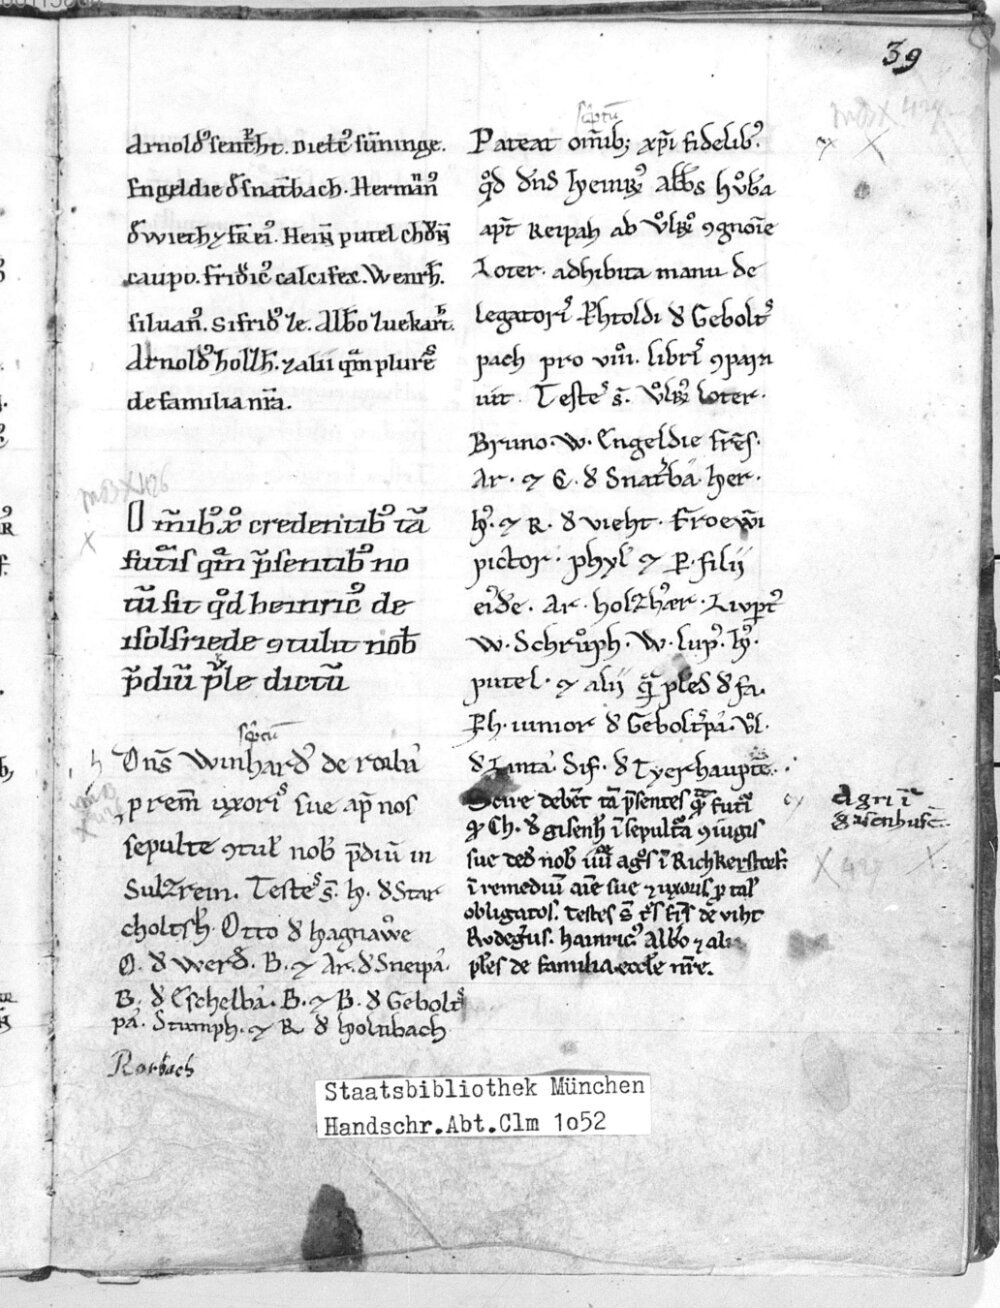 39
Arnoldꝰ senꝼht. Dietꝰ sūninge.
Engeldie ð snaībach. Hermañꝰ
ð wiethyfkeꝰ. Hein putel chðn
caupo. fridicꝰ calcifex. Wenrh̄.
siluanꝰ. Sifridꝰ le. Albo luekart.
Arnoldꝰ hollh̄. ⁊ alii qm̄ plureſ
de familia nr̄a.
O m̄ibꝰ xp̄o credentibꝰ tā
futīſ qm̄ p̄sentibꝰ no
tū sit qd̄ heinricꝰ de
isolfriede ꝯtulit nob̄
p̄diū p̄le dictū
sc̄ptū
Dn̄s Winhardꝰ de rōlu
prem̄ uxorꝭ sue ap̄ nos
sepulte ꝯtul nob̄ p̄diū in
Sulzrein. Testeſ s̄. h̄. ð Star
choltsh̄. Otto ð hagnawe
O. ð werð. B. ⁊ Ar. ð Sneipa.
B. ð Eschelba. B. ⁊ B. ð Gebolt
pa. Stumph. ⁊ R ð holnbach
Rorbach
sc̄ptū
Pateat om̄ib; xp̄i fidelibꝰ.
qd̄ dn̄s heinrꝰ abb̄s hůba
apt̄ Reipah ab Vlrꝰ ꝯgnoīe
Loter. adhibita manu de
legatorꝭ Phtoldi ð Gebolt
pach pro viii. librꝭ ꝯpara
uit. Testeſ s̄. Vlrꝰ loter.
Bruno. W. Engeldie fr̄es.
Ar. ⁊ E. ð Snatba. her.
h̄. ⁊ R. ð vieht. Froewī
pictor. phyl ⁊ P. filij
eiꝰde. Ar. holzhær. Liupt
W. Schrůph. W. lupꝰ. h̄.
putel. ⁊ alij qā pleſ ð fa.
Ph. iunior ð Geboltpa. Vl.
ð Linta. Sif. ð Tyerhaupte.
Scire debēt tā p̄sentes qā futi
q Ch. ð gisenh̄ ī sepultā ꝯiugis
sue ded nob̄ iiii agꝭ ī Richkerstorf
ī remediū aīe sue ⁊ uxoris p tal
obligatoſ. Testes s̄
Rudegus. hainricꝰ Albo ⁊ alii
pleſ de familia. eccle nr̄e.
Agri ī
gisenhuse.
Staatsbibliothek München
Handschr.Abt.Clm 1052